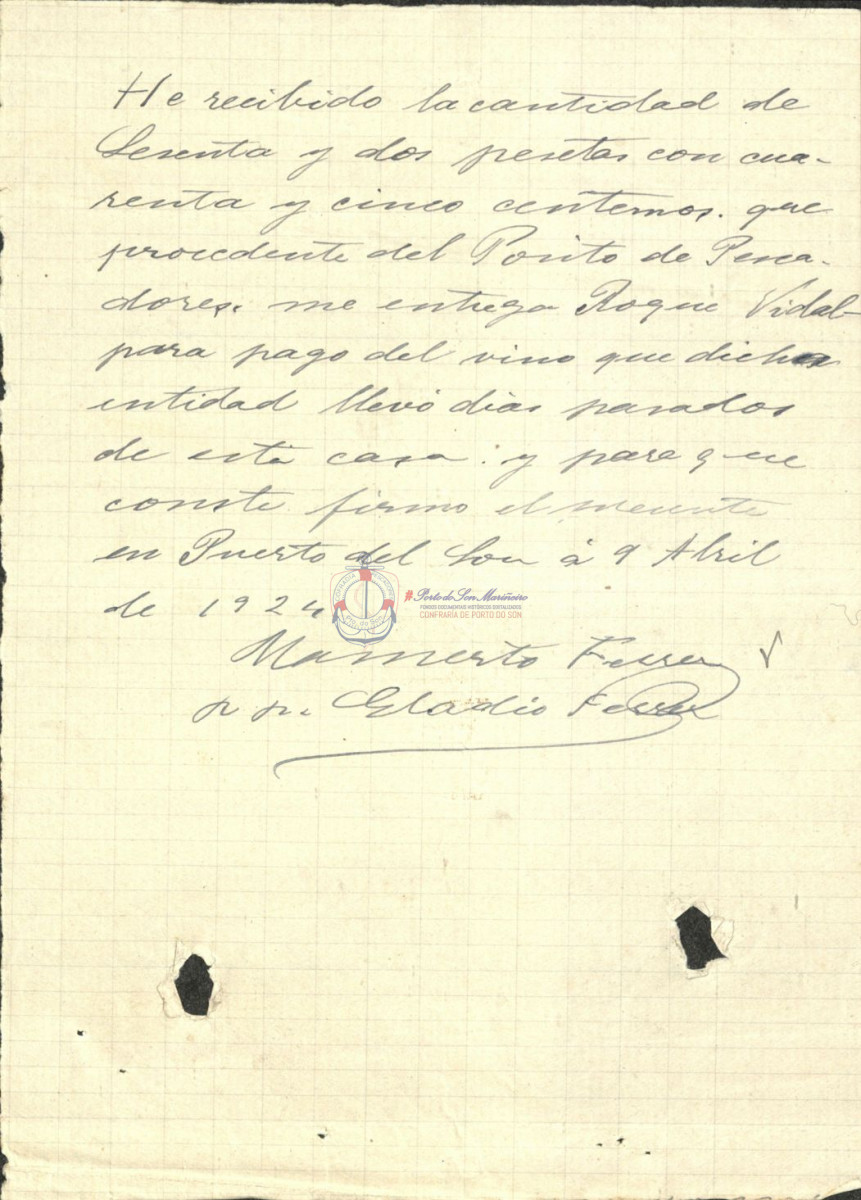 He recibido la cantidad de
Sesenta y dos pesetas con cua-
renta y cinco centemos. que
procedente del Posito de Pesca-
dores. me entrega Roque Vidal
para pago del vino que dicha
entidad llevó dias pasados
de esta casa: y para que
conste firmo el
en Puerto del Son á 9 Abril
de 1924
CONFRARIA PESCADORES
Pto. do Son
#PortodoSonMariñeiro
FONDOS DOCUMENTAIS HISTÓRICOS DIXITALIZADOS
CONFRARÍA DE PORTO DO SON
Mamerto Ferrer
p p. Eladio Ferrer